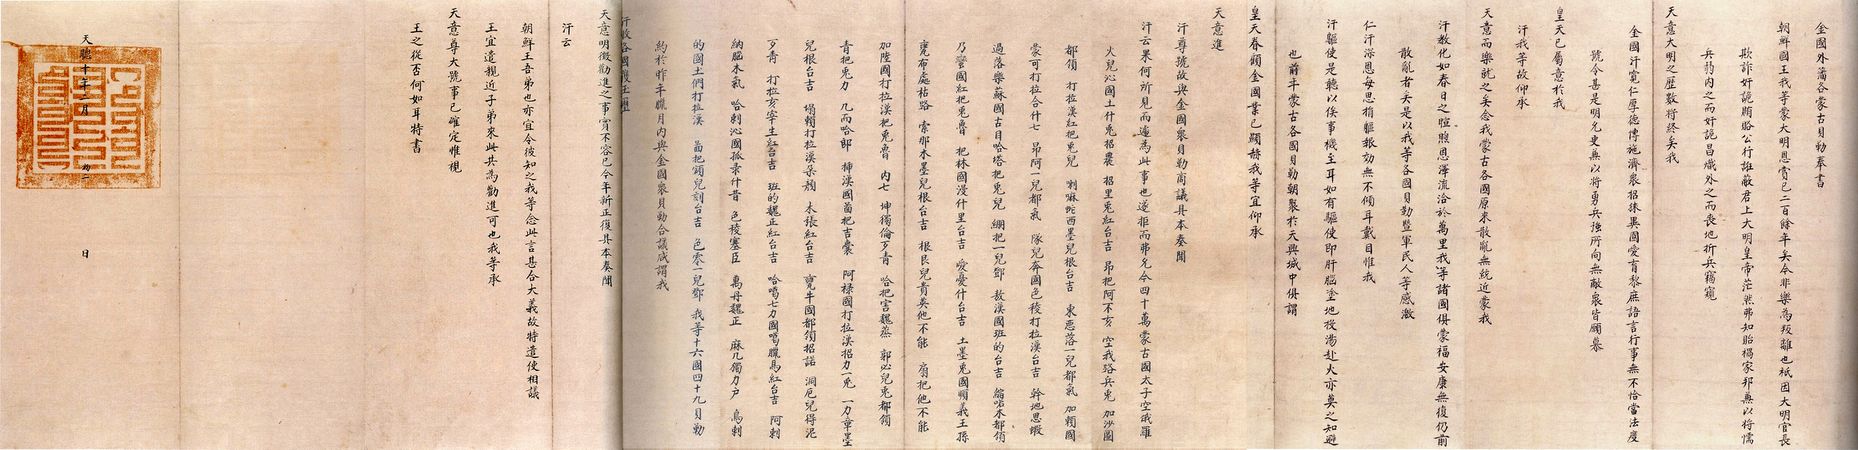 金國外藩各蒙古貝勒奉書
朝鮮國王我等蒙大明恩賞已二百餘年矣今非樂為叛離也祇因大明官長
欺詐奸詭賄賂公行誑蔽君上大明皇帝茫然弗知貽禍家邦無以將懦
兵弱内之而奸詭昌熾外之而喪地折兵竊窺
天意大明之歷數將終矣我
金國汗寬仁厚德傳施濟衆招徠異國愛育黎庶語言行事無不恰當法度
號令甚是明允更無以將勇兵強所向無敵衆皆願慕
皇天已屬意於我
汗我等故仰承
天意而樂就之矣念我蒙古各國原來散亂無統近蒙我
汗教化如春日之暄照恩澤流洽於萬里我等諸國俱蒙福安康無復仍前
散亂者矣是以我等各國貝勒暨軍民人等感激
仁汗深恩每思捐軀報効無不傾耳戴目惟我
汗驅使是聽以俟事機至耳如有驅使即肝腦塗地投湯赴火亦莫之知避
也前年蒙古各國貝勒朝聚於天興城中俱謂
皇天眷顧金國業已顯赫我等宜仰承
天意進
汗尊號故與金國衆貝勒商議具本奏聞
汗云果何所見而遽為此事也遂拒而弗允今四十萬蒙古國太子空戩羅
火兒沁國土什兔招農 招里兔紅台吉 昂把阿不亥 空我珞兵兔 加沙圖
都領 打拉漢紅把兔兒 喇嘛蛇西墨兒根台吉 東惡落一兒都氣 加賴國
蒙可打拉合什七 昂阿一兒都氣 隊兒奔國色稜打拉漢台吉 幹地思蝦
過落樂蘇國古目哈塔把兔兒 綳把一兒鄧 敖漢國班的台吉 縮喏木都領
乃蠻國紅把兔魯 把林國漫什里台吉 愛憂什台吉 土墨兔國順義王孫
甕布處枯路 索那木墨兒根台吉 根艮兒貴英他不能 扇把他不能
加陸國打拉漢把兔魯 内七 坤獨倫歹青 哈把害魏蒸 郭必兒兔都領
青把兔力 几而哈郎 揷漢國菌把吉囊 阿祿國打拉漢招力一兔 一力章墨
兒根台吉 塌賴打拉漢朵顏 木張紅台吉 甕牛國都領招諾 洞厄兒得泥
歹青 打拉亥宰生紅台吉 班的魏正紅台吉 哈噶七力國噶臘馬紅台吉 阿剌
納臘木氣 哈剌沁國孤彔什昔 色稜塞臣 萬丹魏正 麻几獨力户 烏剌
的國土們打拉漢 菌把領兒刻台吉 色零一兒鄧 我等十六國四十九貝勒
約於昨年臘月内與金國衆貝勒合議咸謂我
汗收各國獲玉璽
天意明徴勸進之事實不容已今年新正復具本奏聞
汗云
朝鮮王吾弟也亦宜令彼知之我等念此言甚合大義故特遣使相議
王宜遣親近子弟來此共為勸進可也我等承
天意尊大號事已確定惟視
王之從否何如耳特書
天聰十年二月 初二 日